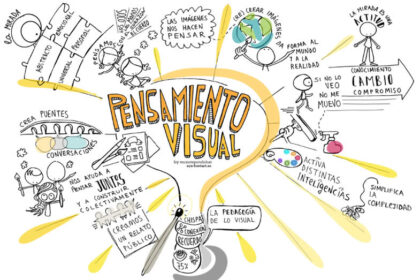 LA MIRADA
ABSTRACTO
PERSONAL
UNIVERSAL
PENSAMOS
LAS IMÁGENES
NOS HACEN
PENSAR
CREAR IMÁGENES
FORMA AL
MUNDO Y A
LA REALIDAD
LA MIRADA ES UNA
ACTITUD
CONOCIMIENTO
CAMBIO
COMPROMISO
SI NO LO
VEO
NO ME
MUEVO
PENSAMIENTO
VISUAL
CREA PUENTES
CONVERSACIÓN
NOS AYUDA A
PENSAR JUNTAS
Y A CONSTRUIR
COLECTIVAMENTE
CREAMOS
UN RELATO
PÚBLICO
CHISPA
CONEXIÓN
RECUERDO
75%
LA PEDAGOGÍA
DE LO VISUAL
ACTIVA
DISTINTAS
INTELIGENCIAS
SIMPLIFICA
LA
COMPLEJIDAD